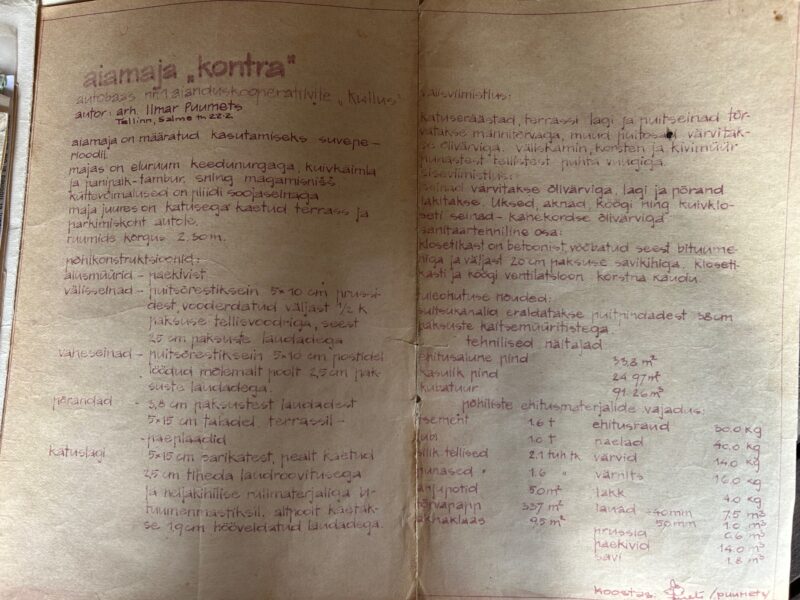 aiamaja „kontra"
autobaas nr.1 aianduskooperatiivile „Kullus"
autor: arh. Ilmar Puumets
Tallinn, Salme tn 22-2
aiamaja on määratud kasutamiseks suvepe-
rioodil
majas on eluruum keedunurgaga, kuivkäimla
ja panipaik-tambur, sning magamisnišš
küttevõimalused on pliidi soojaseinaga
maja juures on katusega kaetud terrass ja
parkimiskoht autole.
ruumide kõrgus 2.50m.
põhikonstruktsioonid:
alusmüürid - paekivist
välisseinad - puitsõrestiksein 5×10 cm prussi-
dest, vooderdatud väljast 1/2 k
paksuse tellisvoodriga, seest
2,5 cm paksuste laudadega
vaheseinad - puitsõrestiksein 5×10 cm postidel
löödud mõlemalt poolt 2,5 cm pak-
suste laudadega.
põrandad - 3,8 cm paksustest laudadest
5×15 cm taladel, terrassil -
- paeplaadid
katuslagi - 5×15 cm sarikatest, pealt kaetud
2,5 cm tiheda laudroovitusega
ja neljakihilise rullmaterjaliga bi-
tuumenmastiksil. altpoolt kaetak-
se 1,9 cm hööveldatud laudadega.
välisviimistlus:
katuseräästad, terrassi lagi ja puitseinad tõr-
vatakse männitõrvaga, muud puitosad värvitak-
se õlivärviga. väliskamin, korsten ja kivimüür
punastest tellistest puhta vuugiga.
siseviimistlus:
seinad värvitakse õlivärviga, lagi ja põrand
lakitakse. Uksed, aknad, köögi ning kuivklo-
seti seinad - kahekordse õlivärviga
sanitaartehniline osa:
klosetikast on betoonist, vööbatud seest bituume-
niga ja väljast 20 cm paksuse savikihiga. kloseti-
kasti ja köögi ventilatsioon korstna kaudu.
tuleohutuse nõuded:
suitsukanalid eraldatakse puitpindadest 38cm
paksuste kaitsemüüritistega.
tehnilised näitajad
ehitusalune pind 33,8 m²
kasulik pind 24.97 m²
kubatuur 91.26 m³
põhiliste ehitusmaterjalide vajadus:
tsement 1.6 t ehitusraud 50.0 kg
lubi 1.0 t naelad 40.0 kg
silik tellised 2.1 tuh tk värvid 14.0 kg
punased " 1.6 " värnits 16.0 kg
50m² lakk 4.0 kg
tõrvapapp 337 m² lauad -40mm 7.5 m³
aknaklaas 9.5 m² 50 mm 1.0 m³
prussid 0.6 m³
paekivid 14.0 m³
savi 1.8 m³
koostas: /puumets/